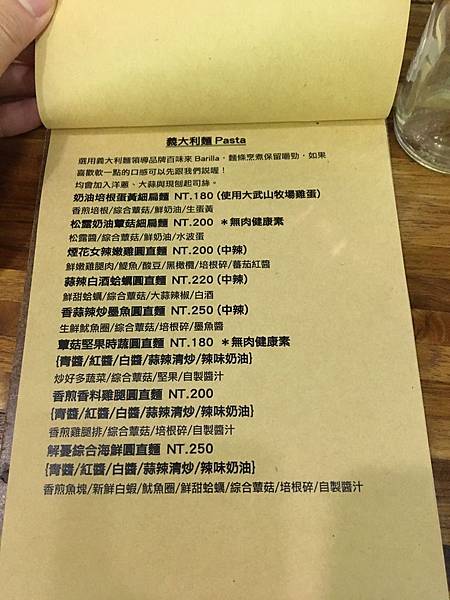 義大利麵 Pasta
選用義大利麵領導品牌百味來 Barilla，麵條烹煮保留嚼勁，如果
喜歡軟一點的口感可以先跟我們說喔！
均會加入洋蔥、大蒜與現刨起司絲。
奶油培根蛋黃細扁麵 NT.180 (使用大武山牧場雞蛋)
香煎培根/綜合蕈菇/鮮奶油/生蛋黃
松露奶油蕈菇細扁麵 NT.200 ＊無肉健康素
松露醬/綜合蕈菇/鮮奶油/水波蛋
煙花女辣嫩雞圓直麵 NT.200 (中辣)
鮮嫩雞腿肉/鯷魚/酸豆/黑橄欖/培根碎/蕃茄紅醬
蒜辣白酒蛤蠣圓直麵 NT.220 (中辣)
鮮甜蛤蠣/綜合蕈菇/大蒜辣椒/白酒
香蒜辣炒墨魚圓直麵 NT.250 (中辣)
生鮮魷魚圈/綜合蕈菇/培根碎/墨魚醬
蕈菇堅果時蔬圓直麵 NT.180 ＊無肉健康素
{青醬/紅醬/白醬/蒜辣清炒/辣味奶油}
炒好多蔬菜/綜合蕈菇/堅果/自製醬汁
香煎香料雞腿圓直麵 NT.200
{青醬/紅醬/白醬/蒜辣清炒/辣味奶油}
香煎雞腿排/綜合蕈菇/培根碎/自製醬汁
解憂綜合海鮮圓直麵 NT.250
{青醬/紅醬/白醬/蒜辣清炒/辣味奶油}
香煎魚塊/新鮮白蝦/魷魚圈/鮮甜蛤蠣/綜合蕈菇/培根碎/自製醬汁